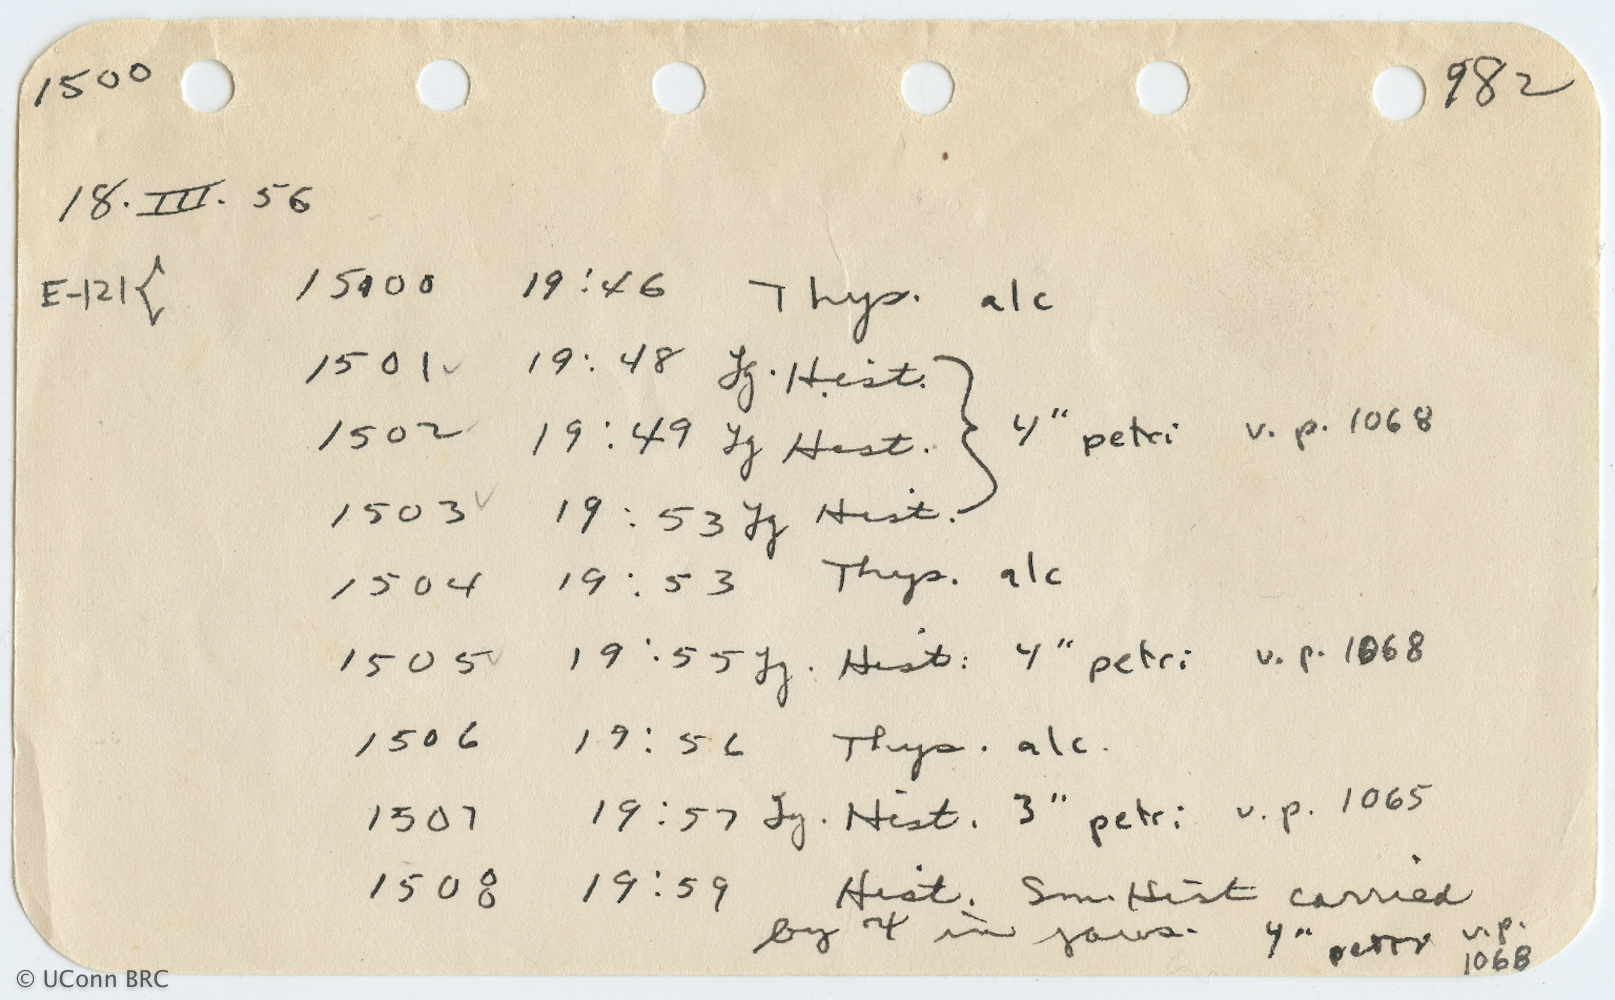 1500 982
18. III. 56
E-121{ 1500 19:46 Thys. alc
1501✓ 19:48 Lg. Hist.
1502✓ 19:49 Lg Hist. } 4" petri v. p. 1068
1503✓ 19:53 Lg Hist.
1504 19:53 Thys. alc
1505✓ 19:55 Lg. Hist: 4" petri v. p. 1068
1506 19:56 Thys. alc.
1507 19:57 Lg. Hist. 3" petri v. p. 1065
1508 19:59 Hist. Sm. Hist carried
by 4 in jaws. 4" petri v.p.
1068
© UConn BRC